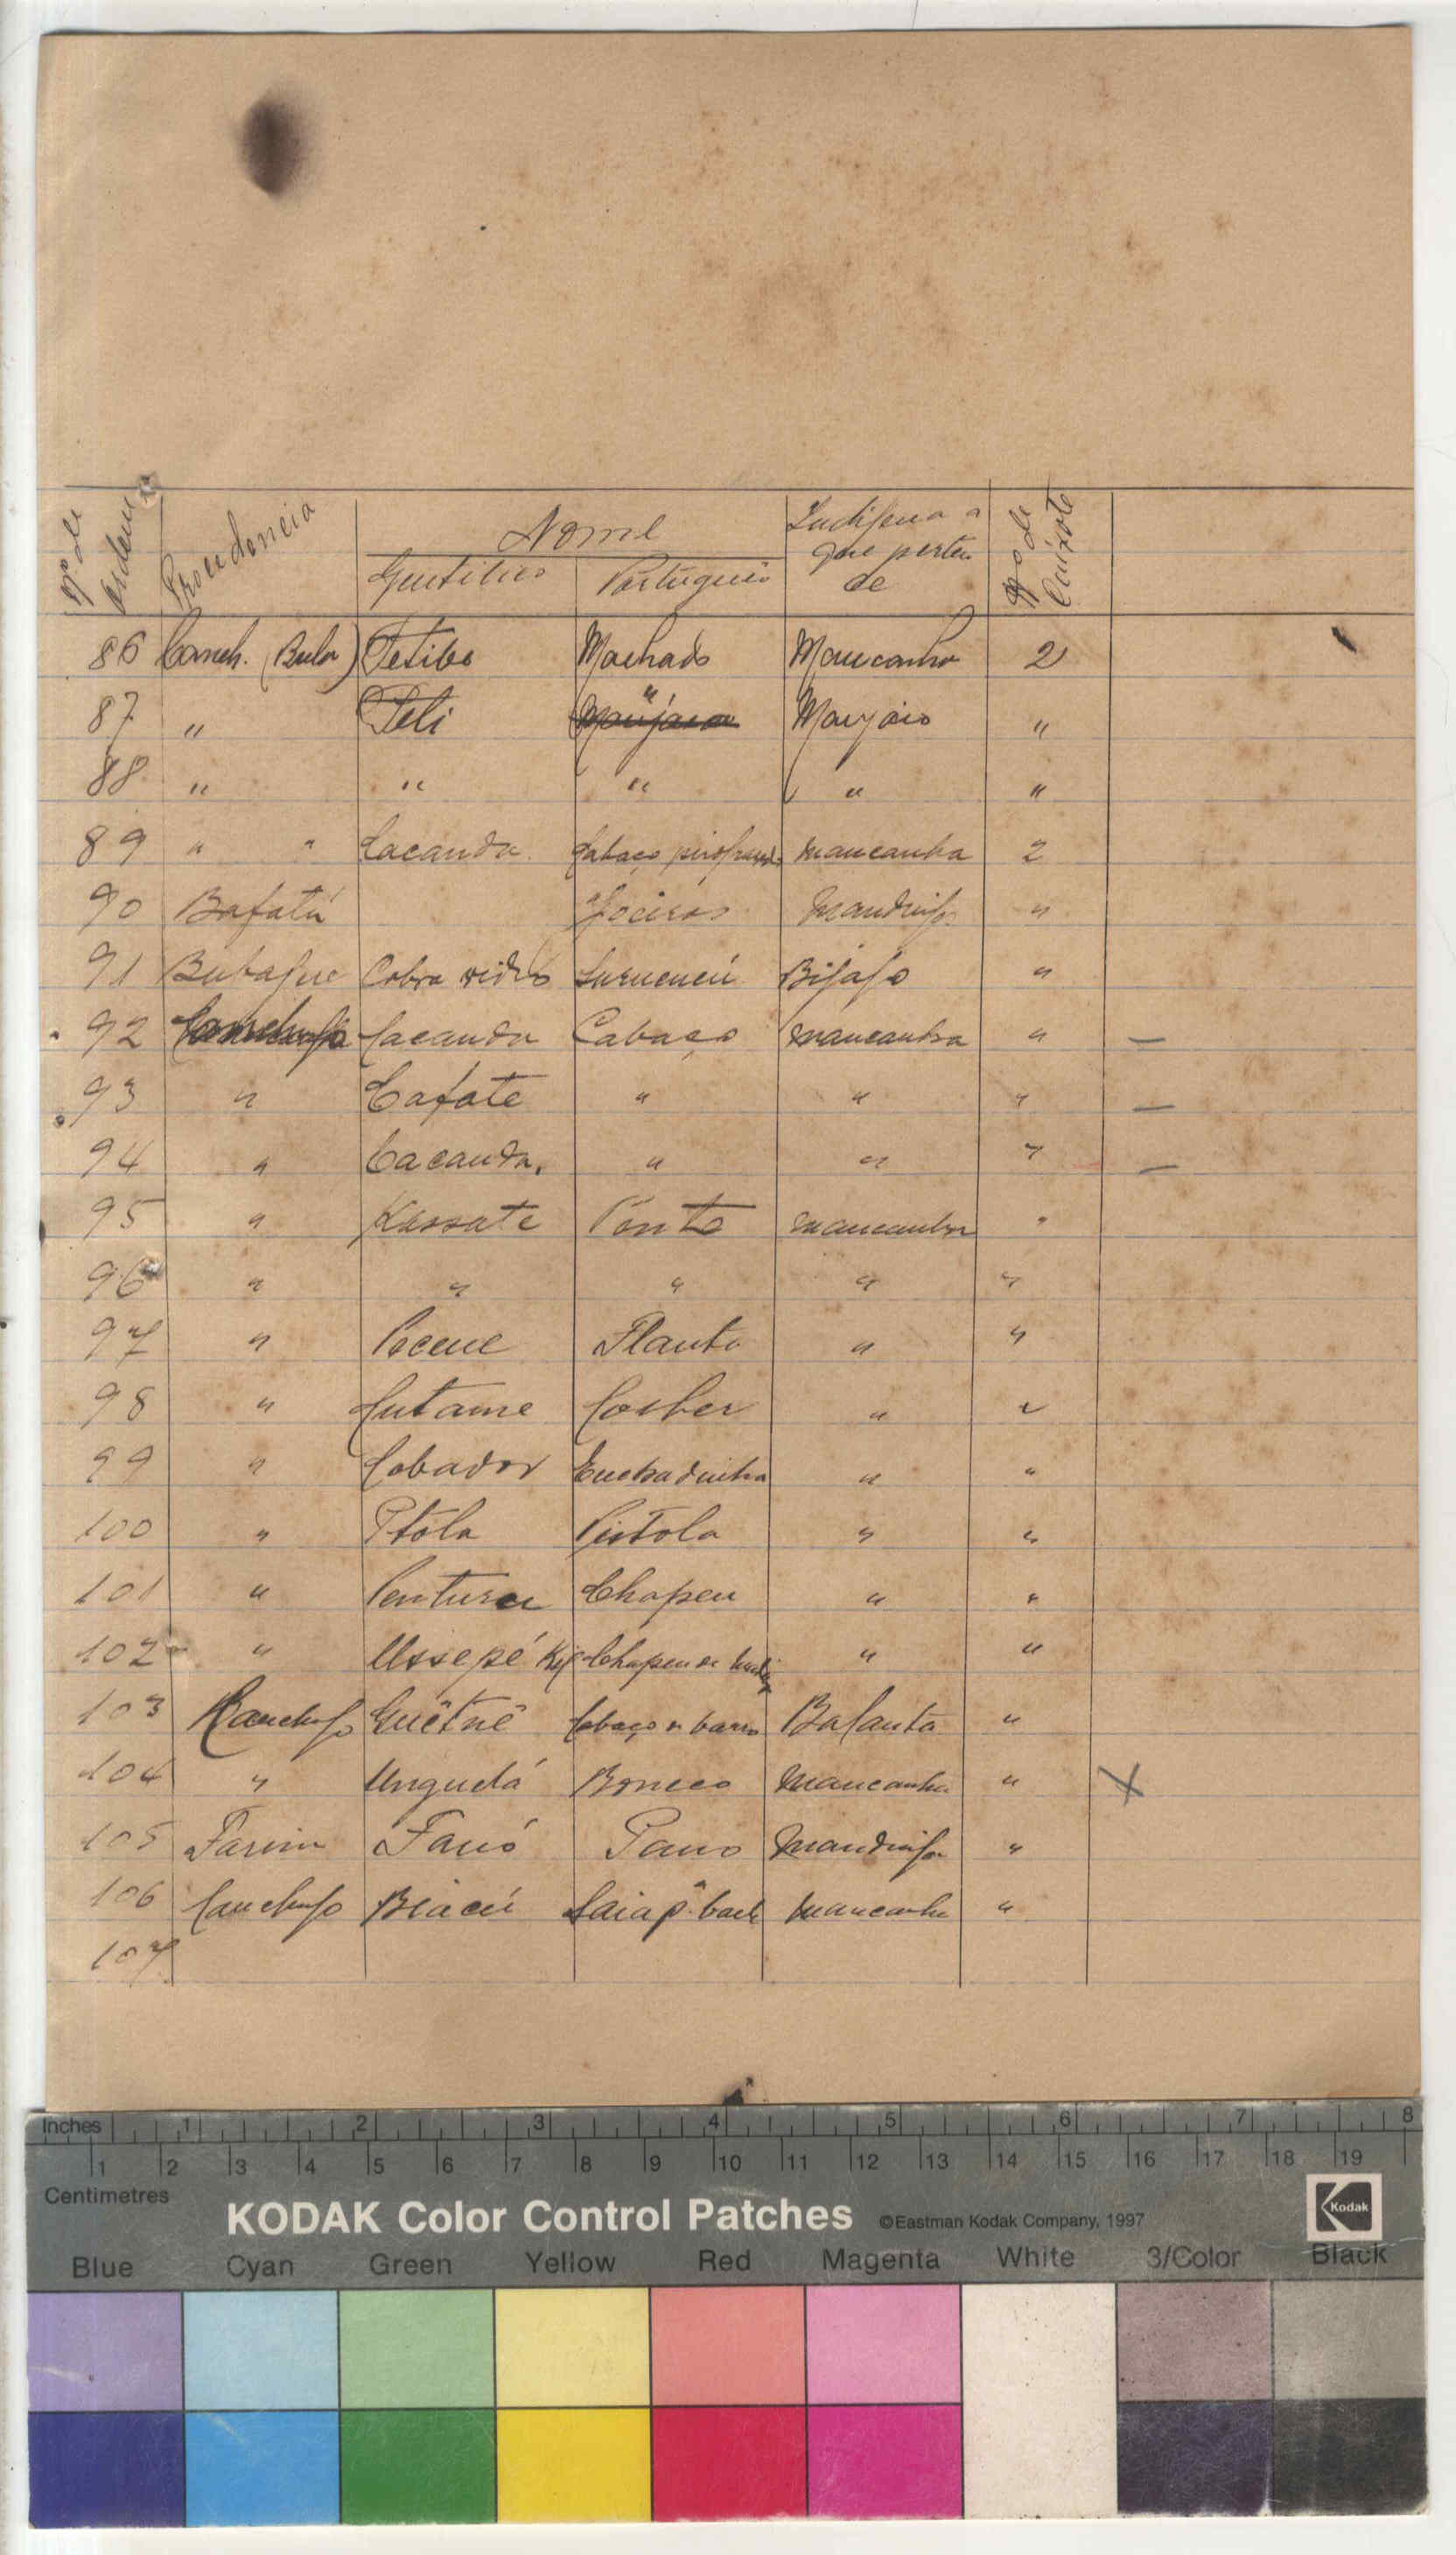 Nº de ordem Procedencia Nome Indigena a que perten de Nº de Caixote
Gentilico Português
86 Canch. (Bula) Tetibe Machado Mancanha 2
87 " Teli " Manjaco "
88 " " " " "
89 " " Cacanda Cabaço mancanha 2
90 Bafatá mandinga "
91 Bubaque Cobra vidro Surucucú Bijagó "
92 Canchungo Cacanda Cabaço mancanha " —
93 " Cafate " " " —
94 " Cacanda. " " " —
95 " Kassate Pente mancanha "
96 " " " " "
97 " Pecene Flauta " "
98 " Cutame Colher " "
99 " Cobador Enchadinha " "
100 " Ptóla Pistola " "
101 " Penturer Chapeu " "
102 " Ussepé Chapeu de " "
103 Canchungo Guêtnê Cabaço de barro Balanta "
104 " Ungudá Boneco Mancanha " X
105 Farim Fanó Pano Mandinga "
106 Canchungo Biacú Saia pª baile mancanha "
107
Inches 1 2 3 4 5 6 7 8
1 2 3 4 5 6 7 8 9 10 11 12 13 14 15 16 17 18 19
Centimetres
KODAK Color Control Patches ©Eastman Kodak Company, 1997 Kodak
Blue Cyan Green Yellow Red Magenta White 3/Color Black